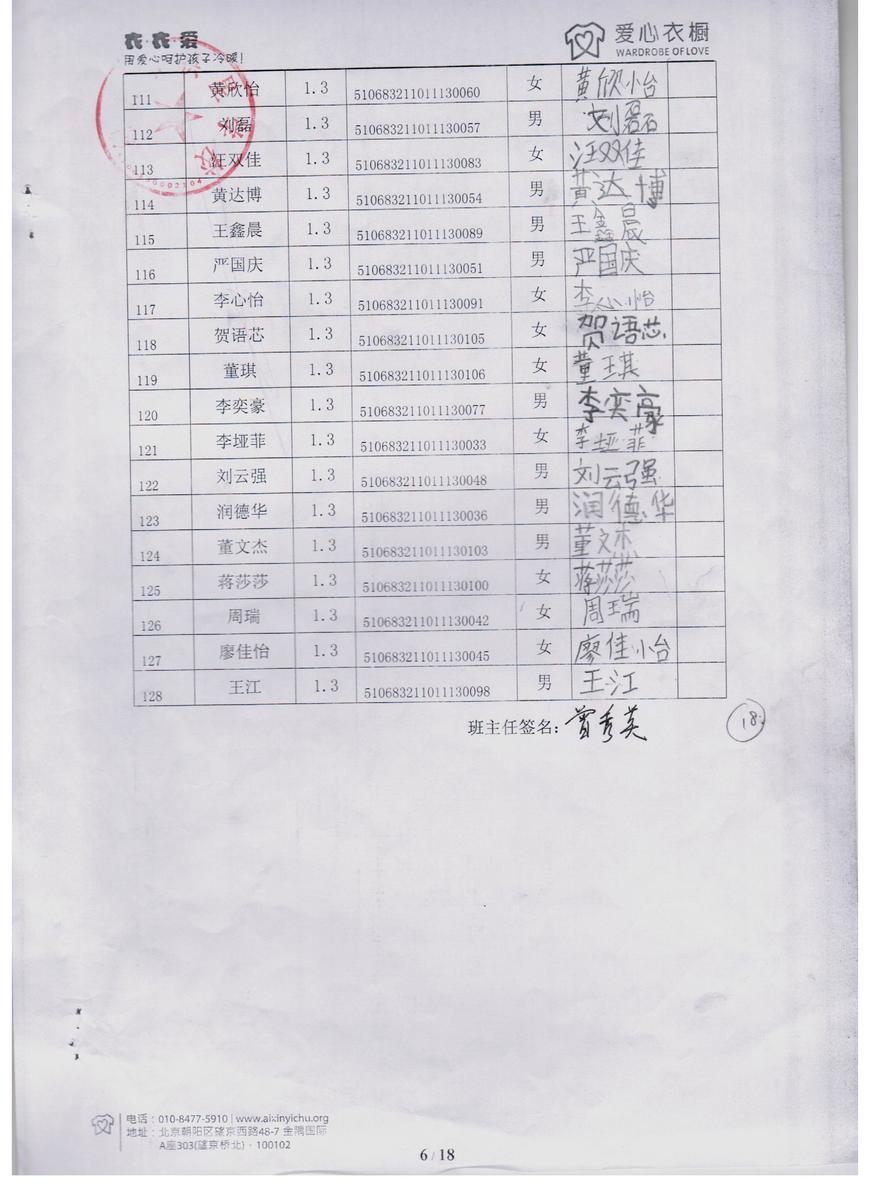 衣·衣·爱
用爱心呵护孩子冷暖!
爱心衣橱
WARDROBE OF LOVE
111 黄欣怡 1.3 510683211011130060 女 黄欣怡
112 刘磊 1.3 510683211011130057 男 刘磊
113 汪双佳 1.3 510683211011130083 女 汪双佳
114 黄达博 1.3 510683211011130054 男 黄达博
115 王鑫晨 1.3 510683211011130089 男 王鑫晨
116 严国庆 1.3 510683211011130051 男 严国庆
117 李心怡 1.3 510683211011130091 女 李心怡
118 贺语芯 1.3 510683211011130105 女 贺语芯
119 董琪 1.3 510683211011130106 女 董琪
120 李奕豪 1.3 510683211011130077 男 李奕豪
121 李垭菲 1.3 510683211011130033 女 李垭菲
122 刘云强 1.3 510683211011130048 男 刘云强
123 润德华 1.3 510683211011130036 男 润德华
124 董文杰 1.3 510683211011130103 男 董文杰
125 蒋莎莎 1.3 510683211011130100 女 蒋莎莎
126 周瑞 1.3 510683211011130042 女 周瑞
127 廖佳怡 1.3 510683211011130045 女 廖佳怡
128 王江 1.3 510683211011130098 男 王江
班主任签名: 曾秀英
18
电话:010-8477-5910 | www.aixinyichu.org
地址:北京朝阳区望京西路48-7 金隅国际
A座303(望京桥北) · 100102
6 / 18